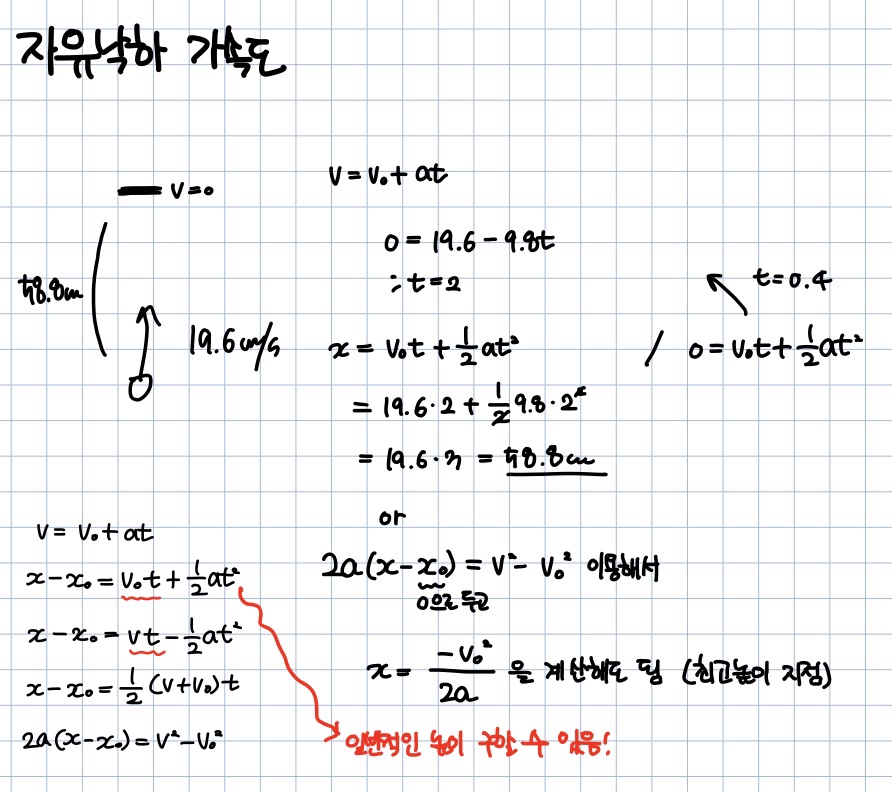 자유낙하 가속도
v=0
58.8cm
19.6cm/s
v = v₀ + at
0 = 19.6 - 9.8t
∴ t = 2
x = v₀t + 1/2 at²
= 19.6 · 2 + 1/2 9.8 · 2²
= 19.6 · 3 = 58.8cm
t = 0.4
/ 0 = v₀t + 1/2 at²
or
2a(x-x₀) = v² - v₀² 이용해서
0으로 두고
x = -v₀²/2a 을 계산해도 됨 (최고높이 지점)
v = v₀ + at
x - x₀ = v₀t + 1/2 at²
x - x₀ = vt - 1/2 at²
x - x₀ = 1/2 (v+v₀)t
2a(x-x₀) = v² - v₀²
일반적인 높이 구할 수 있음!